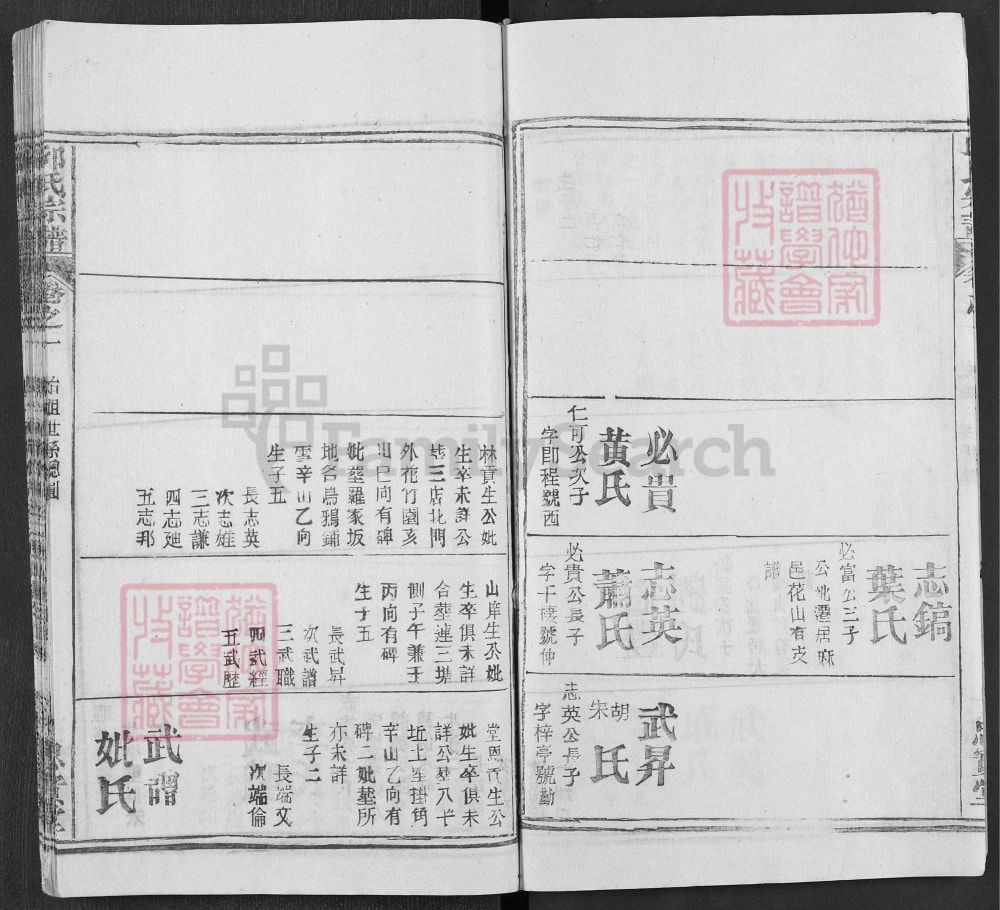 志鎬
葉氏
必富公三子
公妣遷居麻
邑花山有支
譜
必貴
黄氏
仁可公次子
字即程號西
志英
蕭氏
必貴公長子
武昇
胡
朱
氏
志英公長子
字梓亭號勤
林貢生公妣
生卒未詳公
塟三店北門
外花竹園亥
山巳向有碑
妣塟羅家坂
地名烏鴉鋪
雪辛山乙向
生子五
長志英
次志雄
三志謙
四志廸
五志邦
山庠生公妣
生卒俱未詳
合塟連三塘
側子午兼壬
丙向有碑
生子五
長武昇
次武譜
三武職
四武經
五武歷
堂恩貢生公
妣生卒俱未
辛山乙向有
碑二妣墓所
亦未詳
生子二
長端文
次端倫
武譜
妣氏
氏宗譜
卷之一
始祖世系總圖
FamilySearch
譜學會
收藏